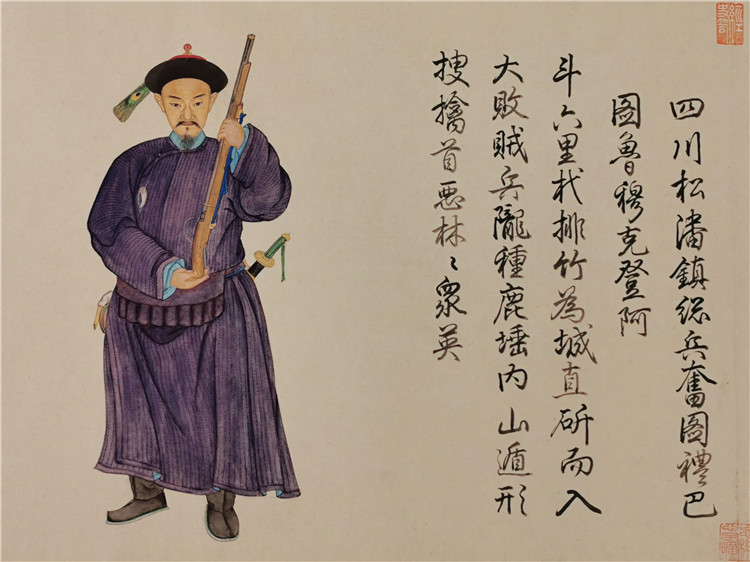 四川松潘鎮総兵奮圖禮巴
圖魯穆克登阿
斗六里杙排竹為城直斫而入
大敗賊兵隴種鹿埵内山遁形
搜擒首惡林〻衆英